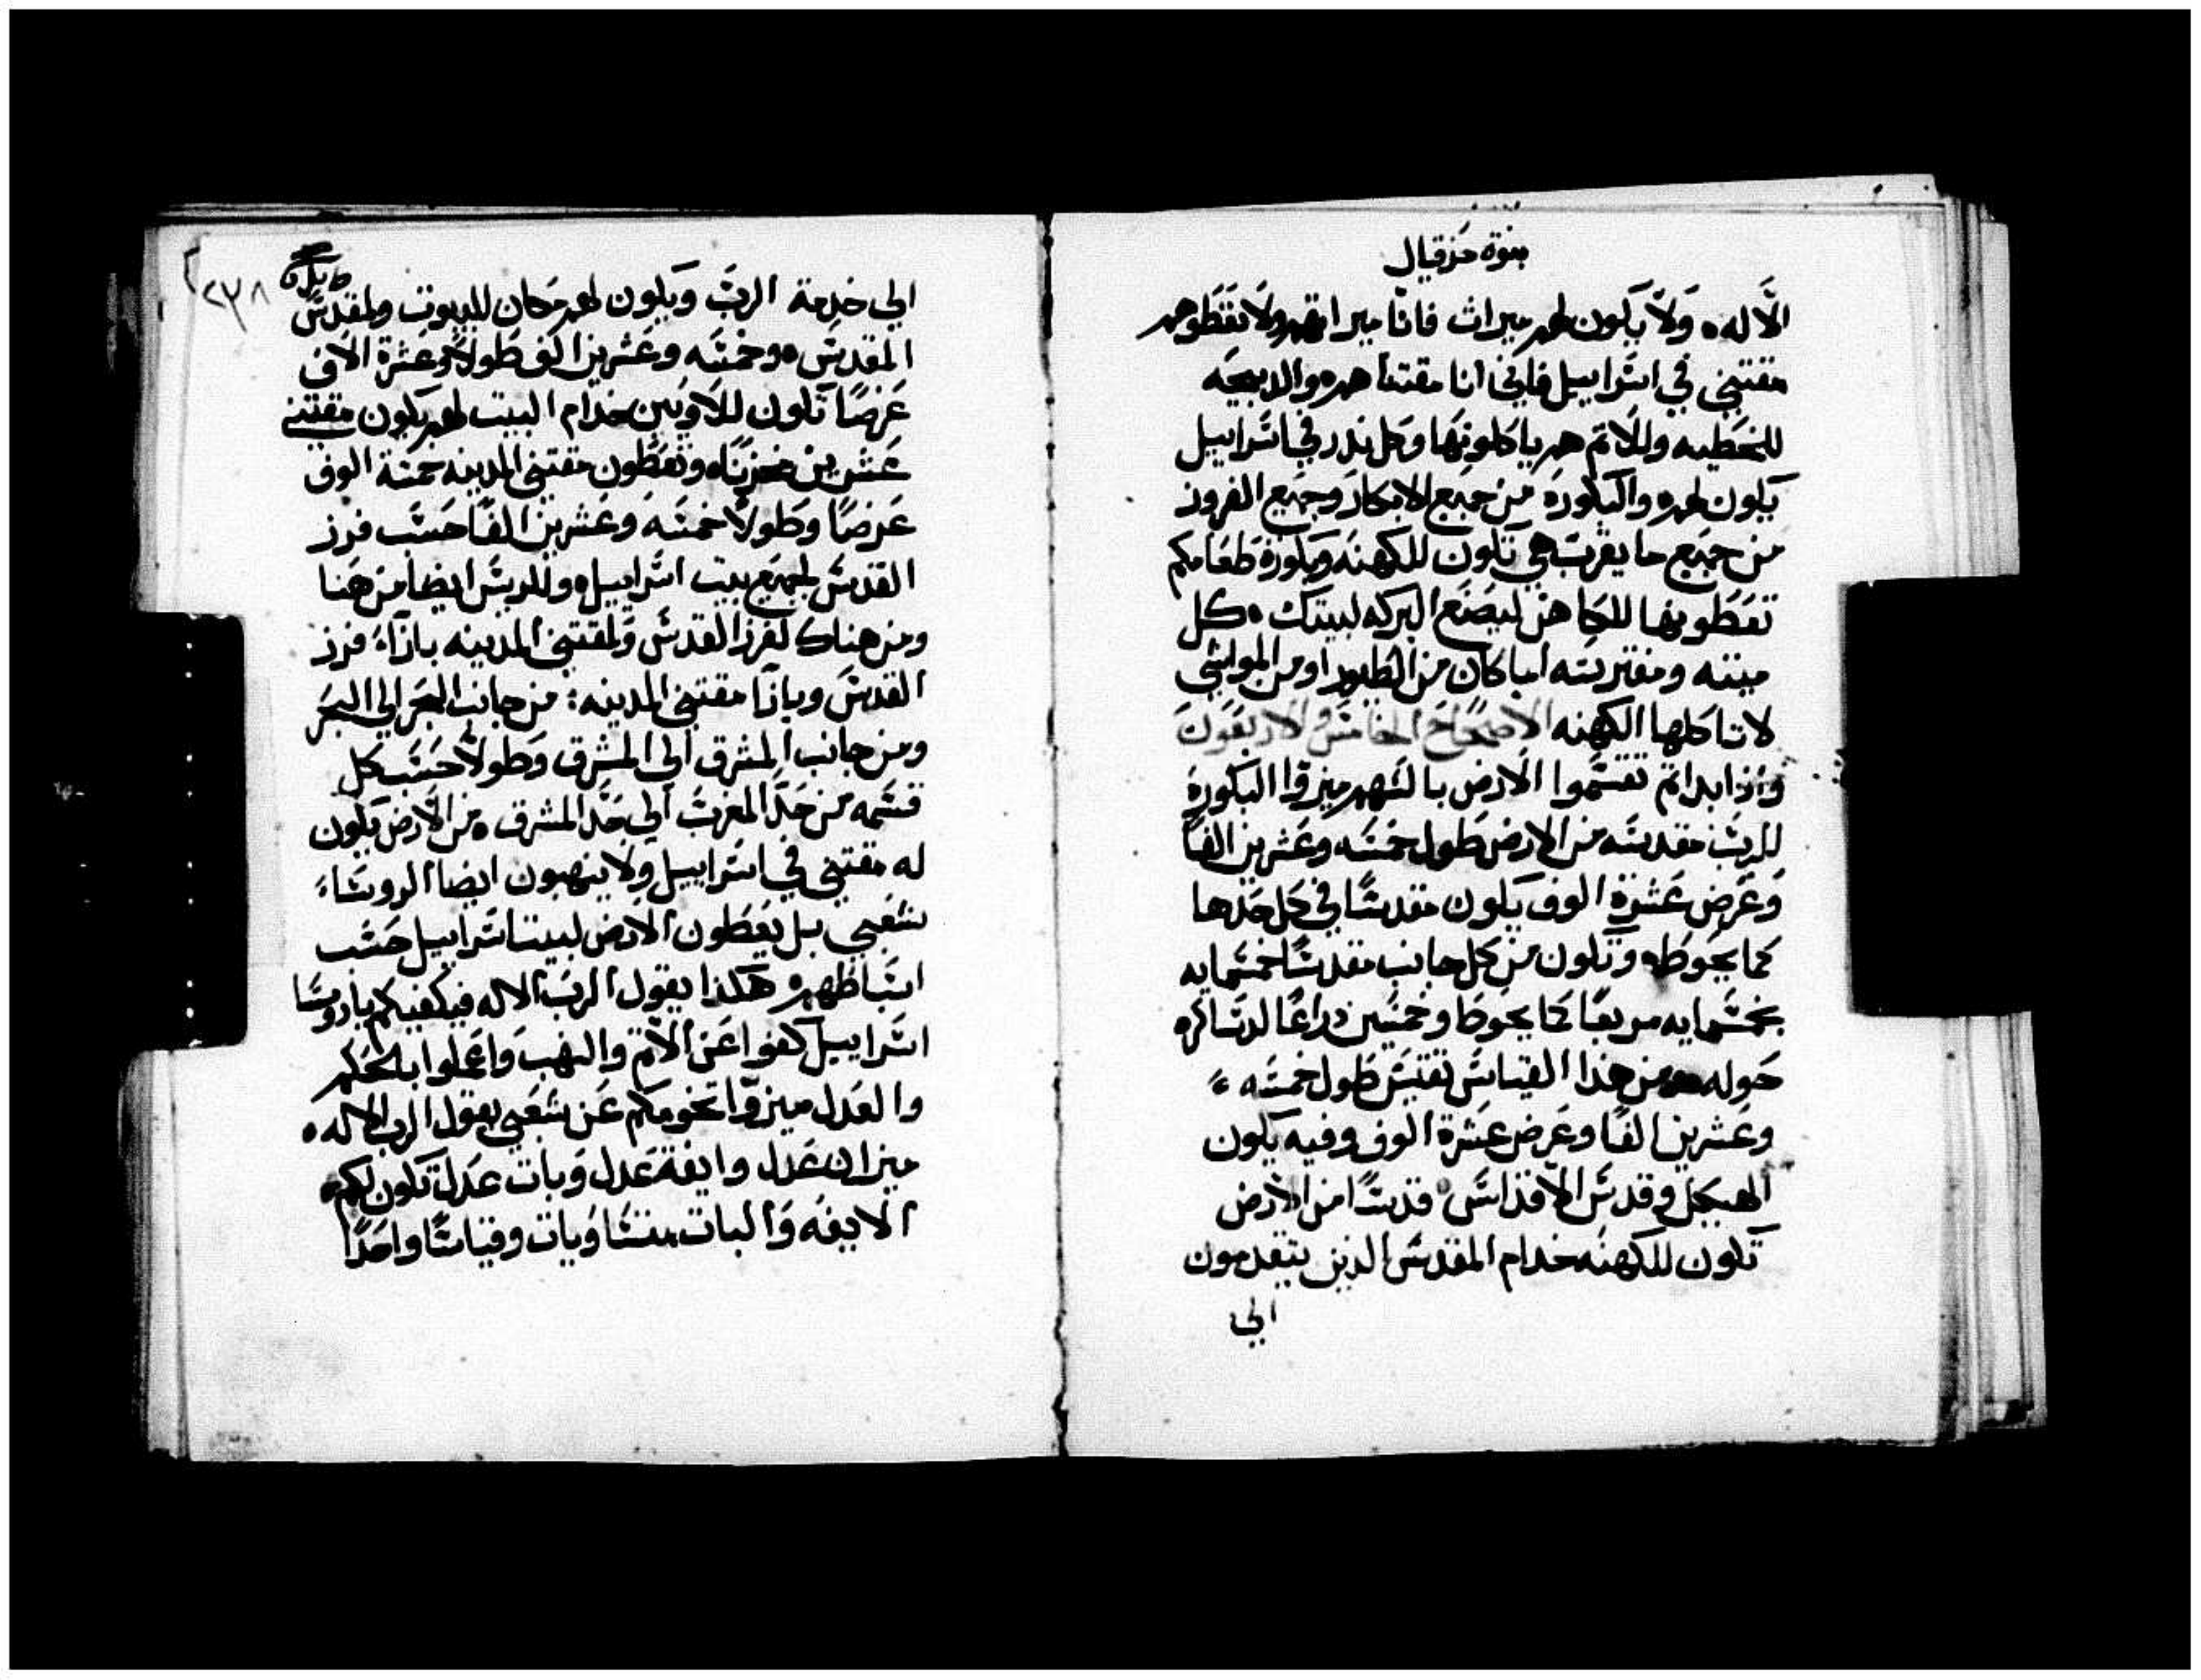 نبوة حزقيال
الاله ولا يكون لهم ميراث فانا ميراثهم ولا تعطوهم
مقتني في اسراييل فاني انا مقتناهم والدبيحه
للخطيه وللاثم هم ياكلونها وكل ندر في اسراييل
يكون لهم والبكوره من جميع الابكار وجميع الفروز
من جميع ما يقرب هي تكون للكهنه وبكورة طعامكم
تعطونها للكاهن ليصنع البركه لبيتك كل
ميته ومفتريسه اما كان من الطيور او من المواشي
لا تاكلها الكهنه الاصحاح الخامس والاربعون
واذا بداتم تقسموا الارض بالسهم ميزوا البكوره
للرب مقدسه من الارض طول خمسه وعشرين الفا
وعرض عشرة الوف يكون مقدسا في كل حدها
كما يحوطه وتكون من كل جانب مقدسا خمسمايه
بخمسمايه مربعا كما يحوط وخمسين دراعا لدساكره
حوله من هذا القياس تقيس طول خمسه
وعشرين الفا وعرض عشرة الوف وفيه يكون
الهيكل وقدس الاقداس قدسا من الارض
تكون للكهنه خدام المقدس الدين يتقدمون
الي
٢٣٨
الي خدمة الرب ويكون لهم مكان للبيوت ولمقدس
المقدس وخمسه وعشرين الف طولا وعشرة الاف
عرضا تكون للاويين خدام البيت لهم يكون مقتني
عشرين مخزنا وتعطون مقتني المدينه خمسة الوف
عرضا وطولا خمسه وعشرين الفا حسب فرز
القدس لجميع بيت اسراييل وللريس ايضا من هنا
ومن هناك لفرز القدس ولمقتني المدينه بازاء فرز
القدس وبازا مقتني المدينه من جانب البحر الي البحر
ومن جانب المشرق الي المشرق وطولا حسب كل
قسمه من حد المغرب الي حد المشرق من الارض يكون
له مقتني في اسراييل ولا ينهبون ايضا الروساء
شعبي بل يعطون الارض لبيت اسراييل حسب
اسباطهم هكذا يقول الرب الاله فيكفيكم ياروسا
اسراييل كفوا عن الاثم والنهب واعملوا بالحكم
والعدل ميزوا تخومكم عن شعبي يقول الرب الاله
ميزان عدل وايفة عدل وبات عدل تكون لكم
الايفه والبات متساويات وقياسا واحدا